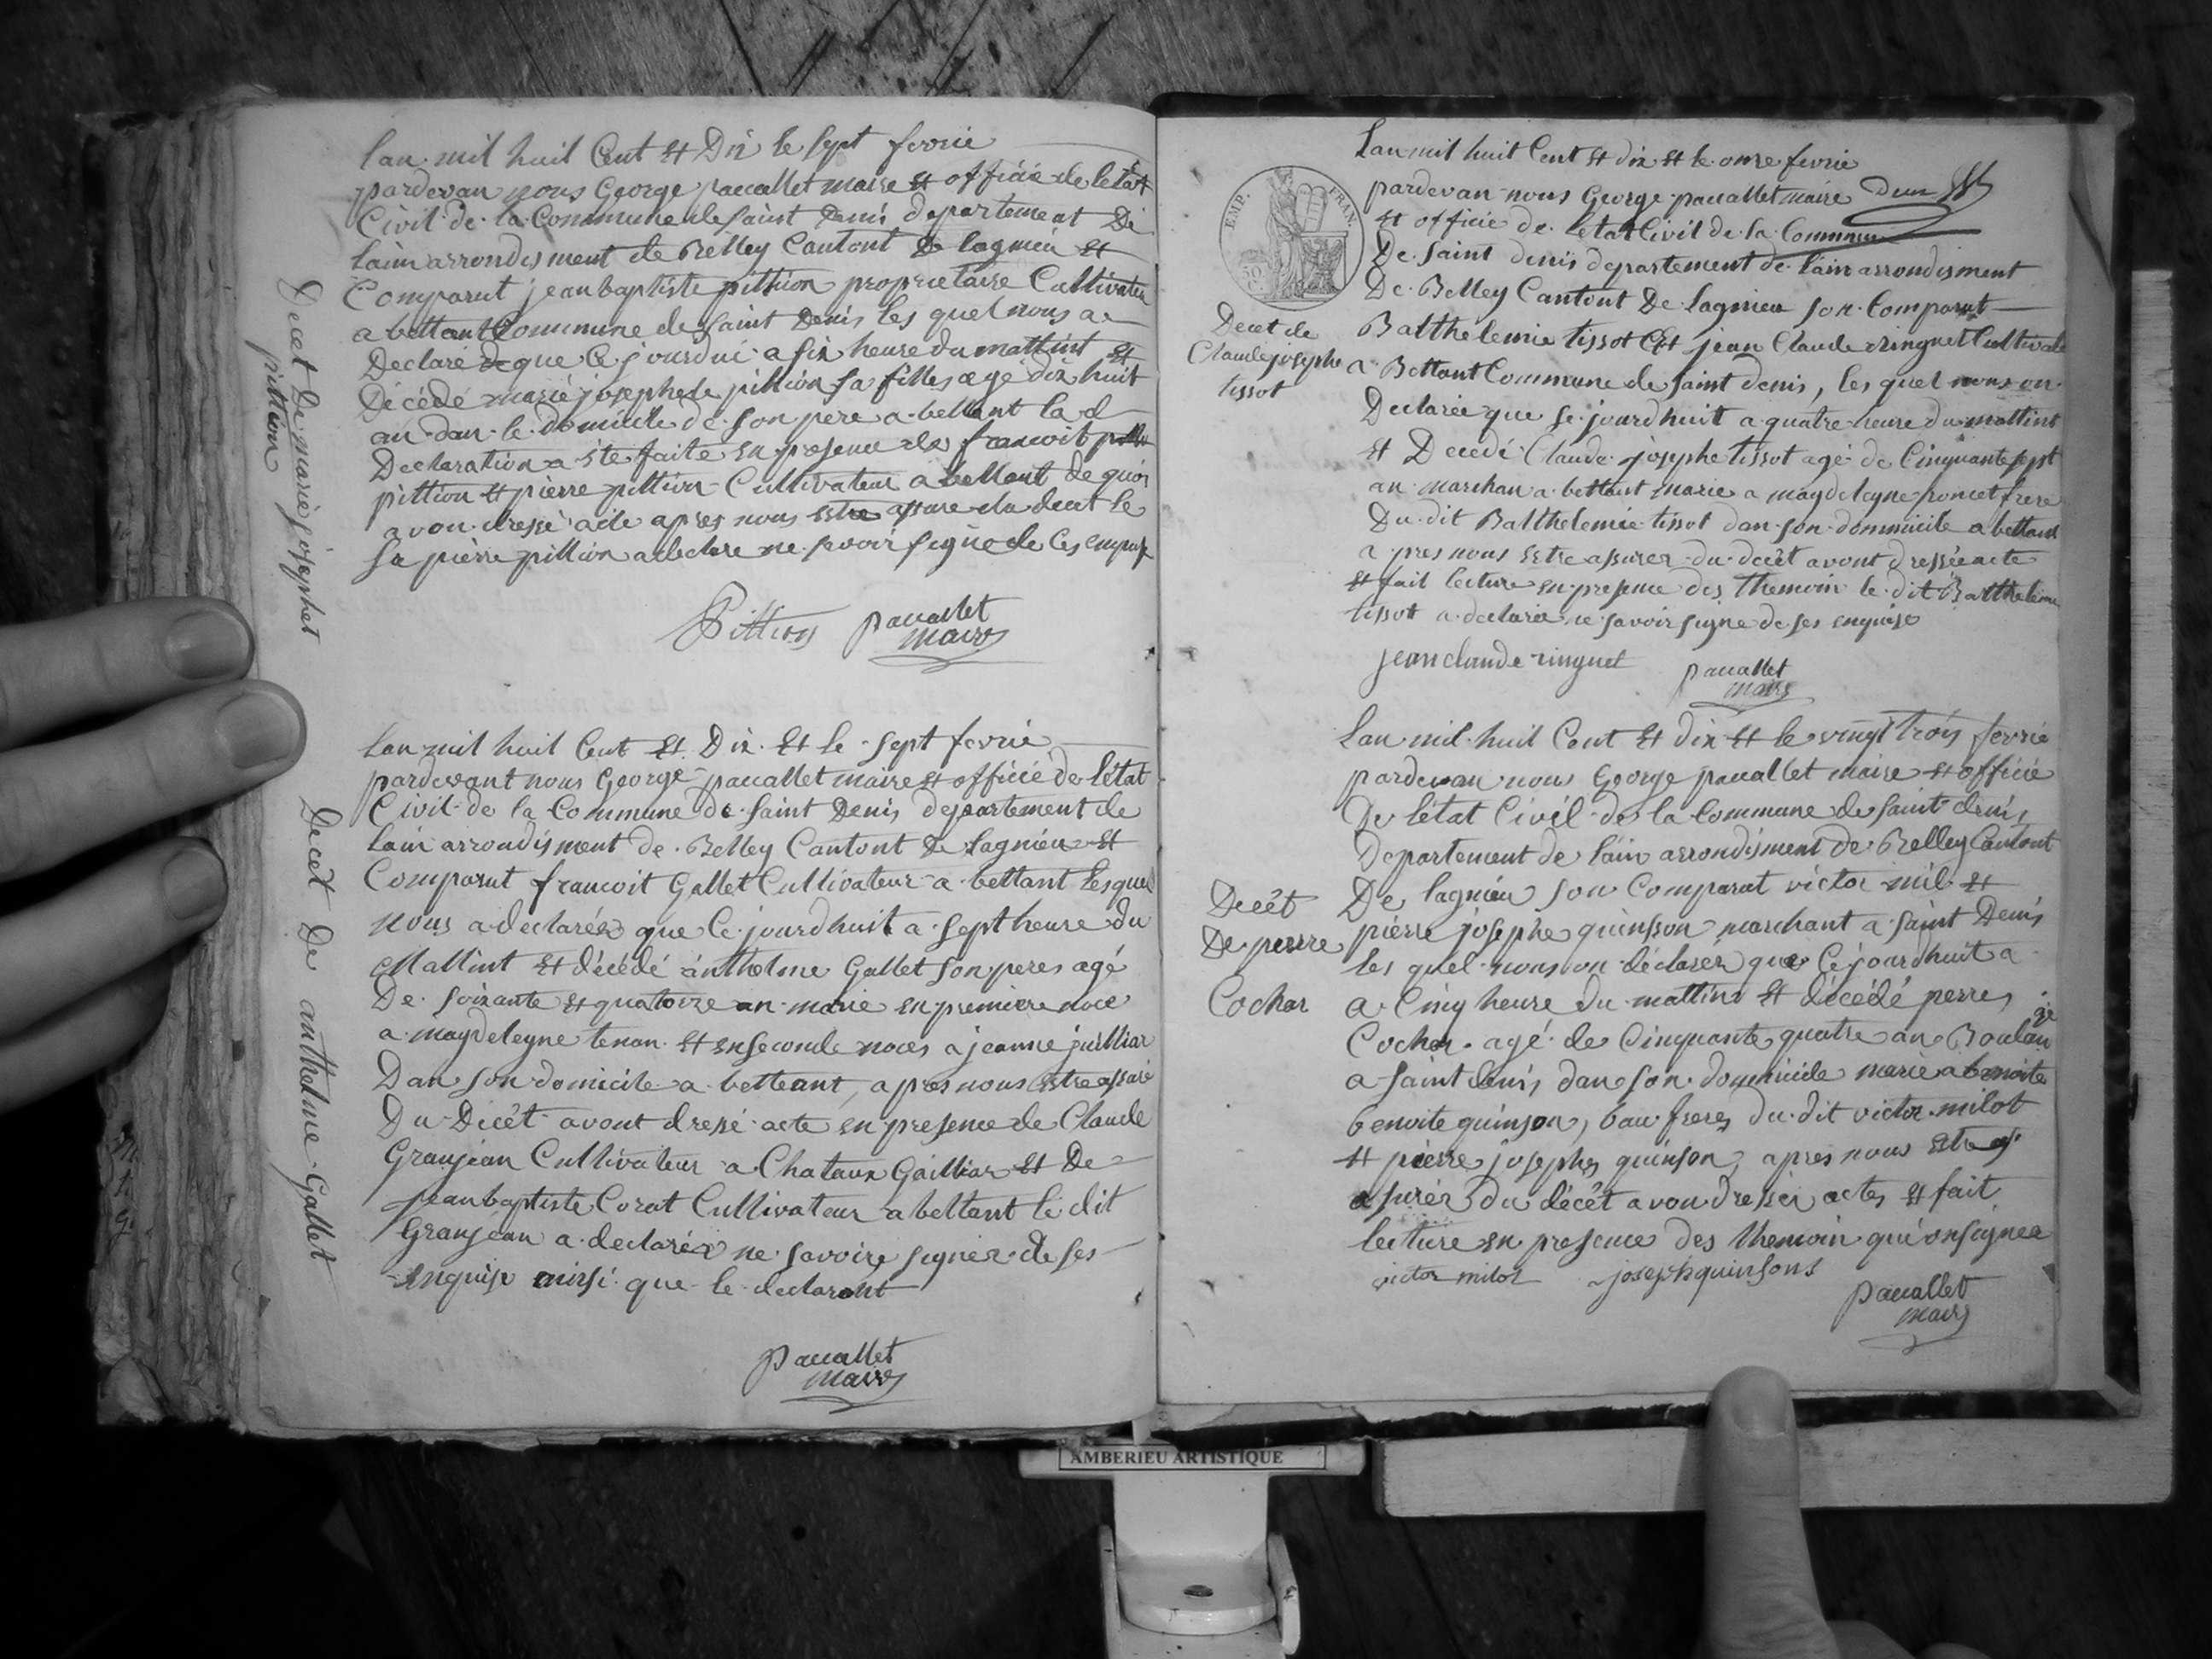 Decet De marie josephet
pittion
lan mil huil Cent et Dix le sept fevrie
pardevan nous George paucallet maire et officié de letat
Civil de la Commune de saint Denis departement De
lain arrondisment de Belley Cantont De lagnieu et
Comparut jean baptiste pittion proprietaire Cultivateur
a bettant Commune de saint Denis les quel nous a
Declaré que Ce jourdui a six heure du mattint et
Décédé marie josephete pittion sa filles age dix huit
an dan le domicile de son pere a bettant la d
Declaration a ète faite en presence de francoit
pittion et pierre pittion Cultivateur a bettant de quoi
avon dressé acte apres nous estre assure du decet le
pierre pittion a declare ne savoir signe de Ces enquise
Pittion paucallet
maire
Decet De anthelme Gallet
lan mil huil Cent et Dix et le sept fevrie
pardevant nous George paucallet maire et officié de létat
Civil de la Commune de Saint Denis departement de
lain arrondisment de Belley Cantont De lagnieu et
Comparut francoit Gallet Cultivateur a bettant lesquel
nous a declaréz que Ce jourdhuit a sept heure du
Mattint et décédé anthelme Gallet son peres agé
De soixante et quatorze an marie en premiere noce
a maydeleyne tenan et en seconde noces a jeanne juilliar
Dan son domicile a betteant, apres nous estre assuré
Du Decêt avont dressé acte en presence de Claude
Granjean Cultivateur a Chataux Gailliar et De
jean baptiste Corat Cultivateur a bettant le dit
Granjean a declaréz ne savoire signer de ses
enquise ainsi que le declarant
paucallet
maire
EMP. FRAN.
50 C.
Lan mil huit Cent et dix et le onze fevrie
pardevan nous George paucallet maire Deux
et officie de letat Civil de la Commune
De Saint denis departement de lain arrondisment
De Belley Cantont De lagnieu son Comparut
Decet de
Claude josephe
tissot
Balthelemie tissot Et jean Claude ringuet Cultivate
a Bettant Commune de saint denis, les quel nous on
Declarée que se jourdhuit a quatre heure du mattint
et Decedé Claude josephe tissot agé de Cinquante sept
an marchan a bettant marie a maydeleyne poncet frere
Du dit Balthelemie tissot dan son dommicile a bettant
apres nous estre assurer du decêt avont dressée acte
et fait lecture en presence des themoin le dit Balthelemie
tissot a declarée ne savoir signe de ses enquise
jean claude ringuet paucallet
maire
Lan mil huil Cent et dix et le vingt trois fevrie
pardevan nous George paucallet maire et officie
De létat Civil de la Commune de saint denis
Departement de lain arrondisment de Belley Cantont
Decêt
De perrre
Cochar
De lagnieu son Comparut victor milot et
pierre josephe quinsson marchant a saint Denis
les quel nous on déclaréz que Cejourdhuit a
a Cinq heure du mattint et décédé perres
Cochar agé de Cinquante quatre an Boulangé
a saint denis dan son dommicile marie a benoite
benoite quinson, bau freres du dit victor milot
et pierre josephes quinson, apres nous estre
assurér du décêt avon dresser actes et fait
lecture en presence des themoin qui on signee
victor milot joseph quinsons
paucallet
maire
AMBERIEU ARTISTIQUE